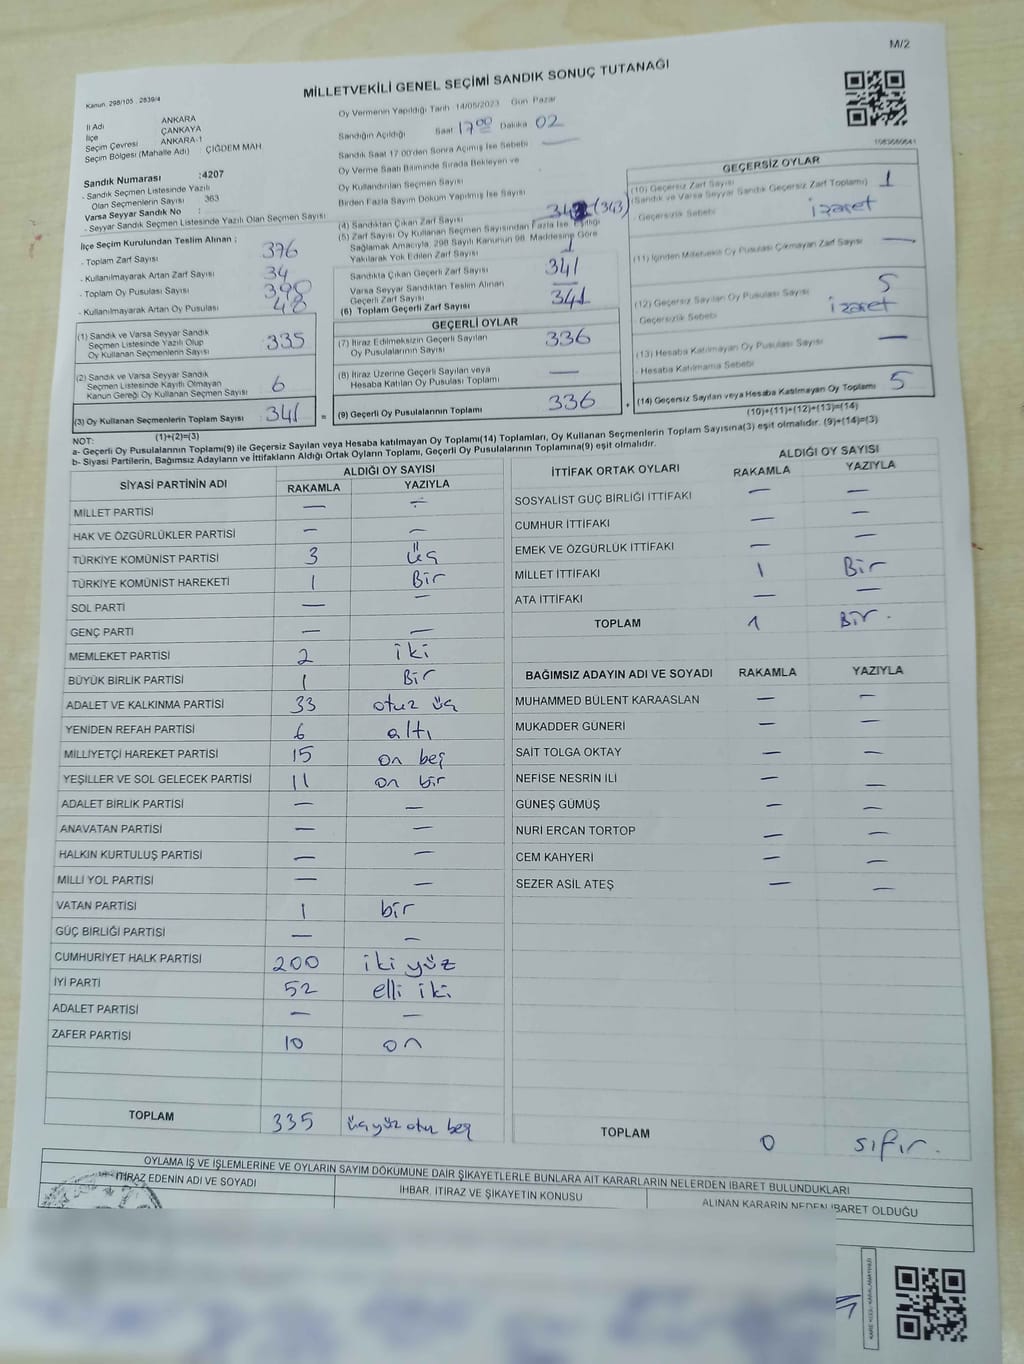 M/2
MİLLETVEKİLİ GENEL SEÇİMİ SANDIK SONUÇ TUTANAĞI
Kanun. 298/105 . 2839/4
İl Adı ANKARA
İlçe ÇANKAYA
Seçim Çevresi ANKARA-1
Seçim Bölgesi (Mahalle Adı) ÇİĞDEM MAH
Sandık Numarası :4207
- Sandık Seçmen Listesinde Yazılı
Olan Seçmenlerin Sayısı 363
Varsa Seyyar Sandık No :
- Seyyar Sandık Seçmen Listesinde Yazılı Olan Seçmen Sayısı
İlçe Seçim Kurulundan Teslim Alınan ;
- Toplam Zarf Sayısı 376
- Kullanılmayarak Artan Zarf Sayısı 34
- Toplam Oy Pusulası Sayısı
- Kullanılmayarak Artan Oy Pusulası 48
(1) Sandık ve Varsa Seyyar Sandık
Seçmen Listesinde Yazılı Olup
Oy Kullanan Seçmenlerin Sayısı 335
(2) Sandık ve Varsa Seyyar Sandık
Seçmen Listesinde Kayıtlı Olmayan
Kanun Gereği Oy Kullanan Seçmen Sayısı 6
(3) Oy Kullanan Seçmenlerin Toplam Sayısı 341 =
(1)+(2)=(3)
Oy Vermenin Yapıldığı Tarih 14/05/2023 Gün Pazar
Sandığın Açıldığı Saat 17 00 Dakika 02
Sandık Saat 17:00'den Sonra Açılmış İse Sebebi —
Oy Verme Saati Bitiminde Sırada Bekleyen ve
Oy Kullandırılan Seçmen Sayısı
Birden Fazla Sayım Döküm Yapılmış İse Sayısı
(4) Sandıktan Çıkan Zarf Sayısı (343)
(5) Zarf Sayısı Oy Kullanan Seçmen Sayısından Fazla İse, Eşitliği
Sağlamak Amacıyla, 298 Sayılı Kanunun 98. Maddesine Göre
Yakılarak Yok Edilen Zarf Sayısı 1
Sandıkta Çıkan Geçerli Zarf Sayısı 341
Varsa Seyyar Sandıktan Teslim Alınan
Geçerli Zarf Sayısı —
(6) Toplam Geçerli Zarf Sayısı 341
GEÇERLİ OYLAR
(7) İtiraz Edilmeksizin Geçerli Sayılan
Oy Pusulalarının Sayısı 336
(8) İtiraz Üzerine Geçerli Sayılan veya
Hesaba Katılan Oy Pusulası Toplamı —
(9) Geçerli Oy Pusulalarının Toplamı 336 +
1083680641
GEÇERSİZ OYLAR
(10) Geçersiz Zarf Sayısı
(Sandık ve Varsa Seyyar Sandık Geçersiz Zarf Toplamı) 1
- Geçersizlik Sebebi izaret
(11) İçinden Milletvekili Oy Pusulası Çıkmayan Zarf Sayısı —
(12) Geçersiz Sayılan Oy Pusulası Sayısı 5
Geçersizlik Sebebi izaret
(13) Hesaba Katılmayan Oy Pusulası Sayısı —
- Hesaba Katılmama Sebebi
(14) Geçersiz Sayılan veya Hesaba Katılmayan Oy Toplamı 5
(10)+(11)+(12)+(13)=(14)
NOT:
a- Geçerli Oy Pusulalarının Toplamı(9) ile Geçersiz Sayılan veya Hesaba katılmayan Oy Toplamı(14) Toplamları, Oy Kullanan Seçmenlerin Toplam Sayısına(3) eşit olmalıdır. (9)+(14)=(3)
b- Siyasi Partilerin, Bağımsız Adayların ve İttifakların Aldığı Ortak Oyların Toplamı, Geçerli Oy Pusulalarının Toplamına(9) eşit olmalıdır.
SİYASİ PARTİNİN ADI ALDIĞI OY SAYISI
RAKAMLA YAZIYLA
MİLLET PARTİSİ — —
HAK VE ÖZGÜRLÜKLER PARTİSİ — —
TÜRKİYE KOMÜNİST PARTİSİ 3 üç
TÜRKİYE KOMÜNİST HAREKETİ 1 Bir
SOL PARTİ — —
GENÇ PARTİ — —
MEMLEKET PARTİSİ 2 iki
BÜYÜK BİRLİK PARTİSİ 1 Bir
ADALET VE KALKINMA PARTİSİ 33 otuz üç
YENİDEN REFAH PARTİSİ 6 altı
MİLLİYETÇİ HAREKET PARTİSİ 15 on beş
YEŞİLLER VE SOL GELECEK PARTİSİ 11 on bir
ADALET BİRLİK PARTİSİ — —
ANAVATAN PARTİSİ — —
HALKIN KURTULUŞ PARTİSİ — —
MİLLİ YOL PARTİSİ — —
VATAN PARTİSİ 1 bir
GÜÇ BİRLİĞİ PARTİSİ — —
CUMHURİYET HALK PARTİSİ 200 iki yüz
İYİ PARTİ 52 elli iki
ADALET PARTİSİ — —
ZAFER PARTİSİ 10 on
TOPLAM 335 üçyüz otuz beş
İTTİFAK ORTAK OYLARI ALDIĞI OY SAYISI
RAKAMLA YAZIYLA
SOSYALİST GÜÇ BİRLİĞİ İTTİFAKI — —
CUMHUR İTTİFAKI — —
EMEK VE ÖZGÜRLÜK İTTİFAKI — —
MİLLET İTTİFAKI 1 Bir
ATA İTTİFAKI — —
TOPLAM 1 Bir.
BAĞIMSIZ ADAYIN ADI VE SOYADI RAKAMLA YAZIYLA
MUHAMMED BÜLENT KARAASLAN — —
MUKADDER GÜNERİ — —
SAİT TOLGA OKTAY — —
NEFİSE NESRİN İLİ — —
GÜNEŞ GÜMÜŞ — —
NURİ ERCAN TORTOP — —
CEM KAHYERİ — —
SEZER ASİL ATEŞ — —
TOPLAM 0 sıfır.
OYLAMA İŞ VE İŞLEMLERİNE VE OYLARIN SAYIM DÖKÜMÜNE DAİR ŞİKAYETLERLE BUNLARA AİT KARARLARIN NELERDEN İBARET BULUNDUKLARI
İTİRAZ EDENİN ADI VE SOYADI İHBAR, İTİRAZ VE ŞİKAYETİN KONUSU ALINAN KARARIN NEDEN İBARET OLDUĞU
KARE KODU KARALAMAYINIZ!